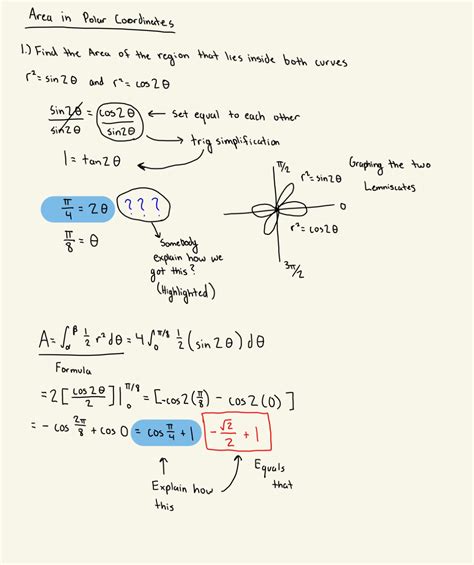 Area in Polar Coordinates
1.) Find the Area of the region that lies inside both curves
r² = sin2θ and r² = cos2θ
sin2θ/sin2θ = cos2θ/sin2θ ← Set equal to each other
→ trig simplification
1 = tan2θ
π/4 = 2θ ???
π/8 = θ
Somebody
explain how we
got this?
(Highlighted)
Graphing the two
Lemniscates
π/2
r² = sin2θ
0
r² = cos2θ
3π/2
A = ∫_α^β 1/2 r² dθ = 4 ∫_0^π/8 1/2 (sin2θ) dθ
Formula
= 2 [cos2θ/2] |_0^π/8 = [-cos2(π/8) - cos2(0)]
= - cos 2π/8 + cos 0 = cos π/4 + 1 -√2/2 + 1
Explain how
this
Equals
that